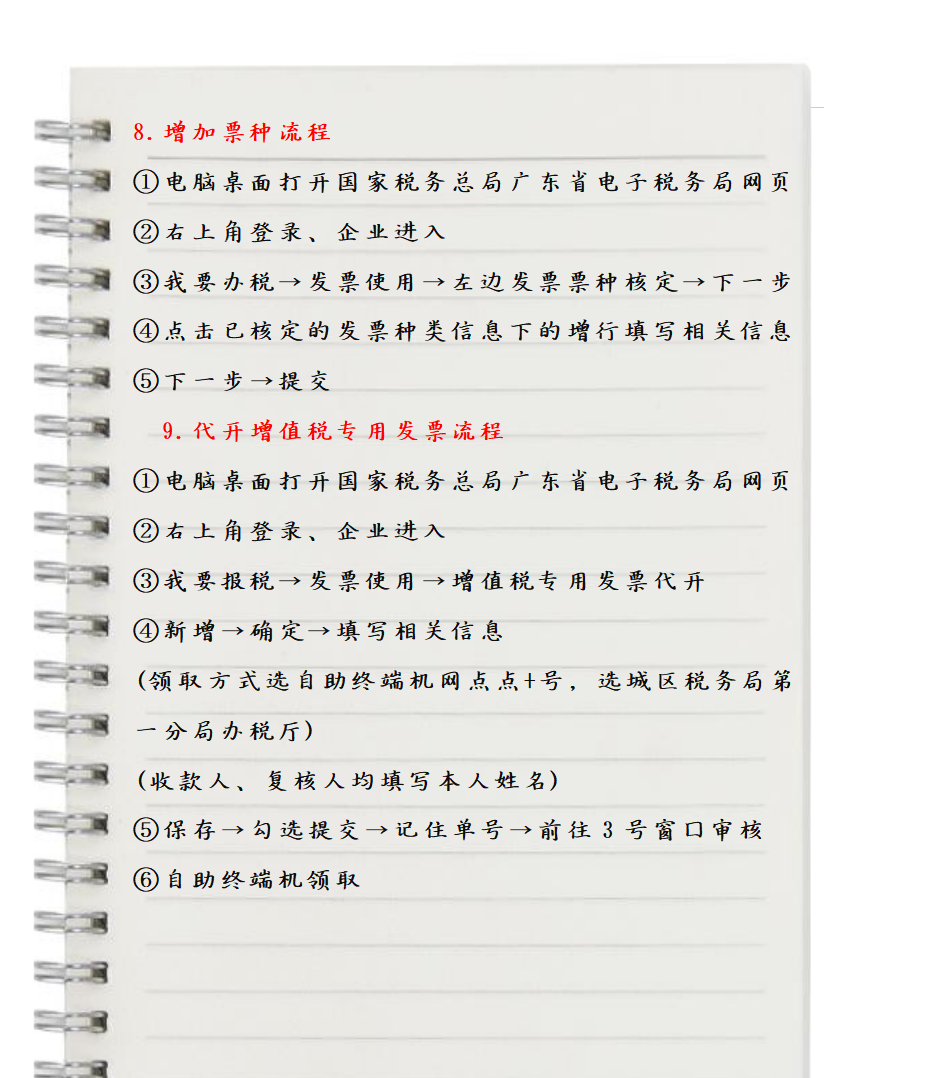 8.增加票种流程
①电脑桌面打开国家税务总局广东省电子税务局网页
②右上角登录、企业进入
③我要办税→发票使用→左边发票票种核定→下一步
④点击已核定的发票种类信息下的增行填写相关信息
⑤下一步→提交
9.代开增值税专用发票流程
①电脑桌面打开国家税务总局广东省电子税务局网页
②右上角登录、企业进入
③我要报税→发票使用→增值税专用发票代开
④新增→确定→填写相关信息
(领取方式选自助终端机网点点+号，选城区税务局第
一分局办税厅)
(收款人、复核人均填写本人姓名)
⑤保存→勾选提交→记住单号→前往3号窗口审核
⑥自助终端机领取